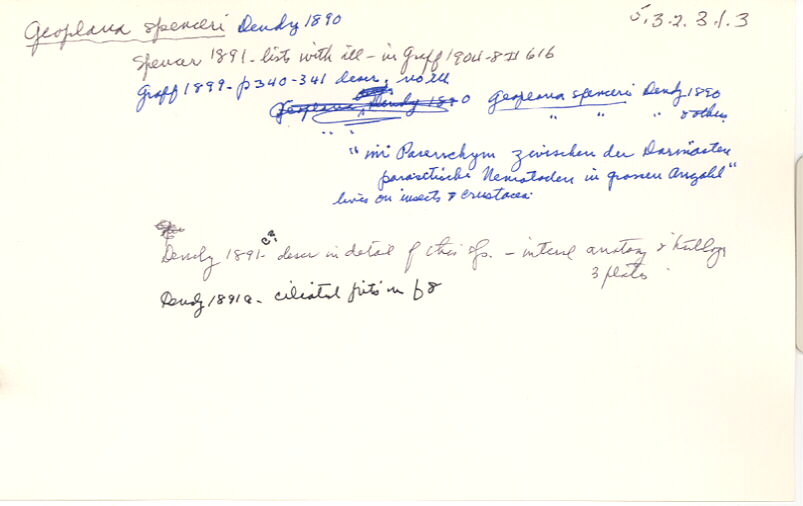 Geoplana spenceri Dendy 1890
5.3.2.3.1.3
Spencer 1891 - lists with ill - in Graff 1904-8 II 616
Graff 1899 - p340-341 descr, no ill
Geoplana Dendy 1890 Geoplana spenceri Dendy 1890
" " " & others
"im Parenchym zwischen den Darmästen
parasitische Nematoden in grossen Anzahl"
lives on insects & crustacea.
Dendy 1891- descr in detail of this sp. - internal anatomy & histology
3 plates
Dendy 1891a - ciliated pits in